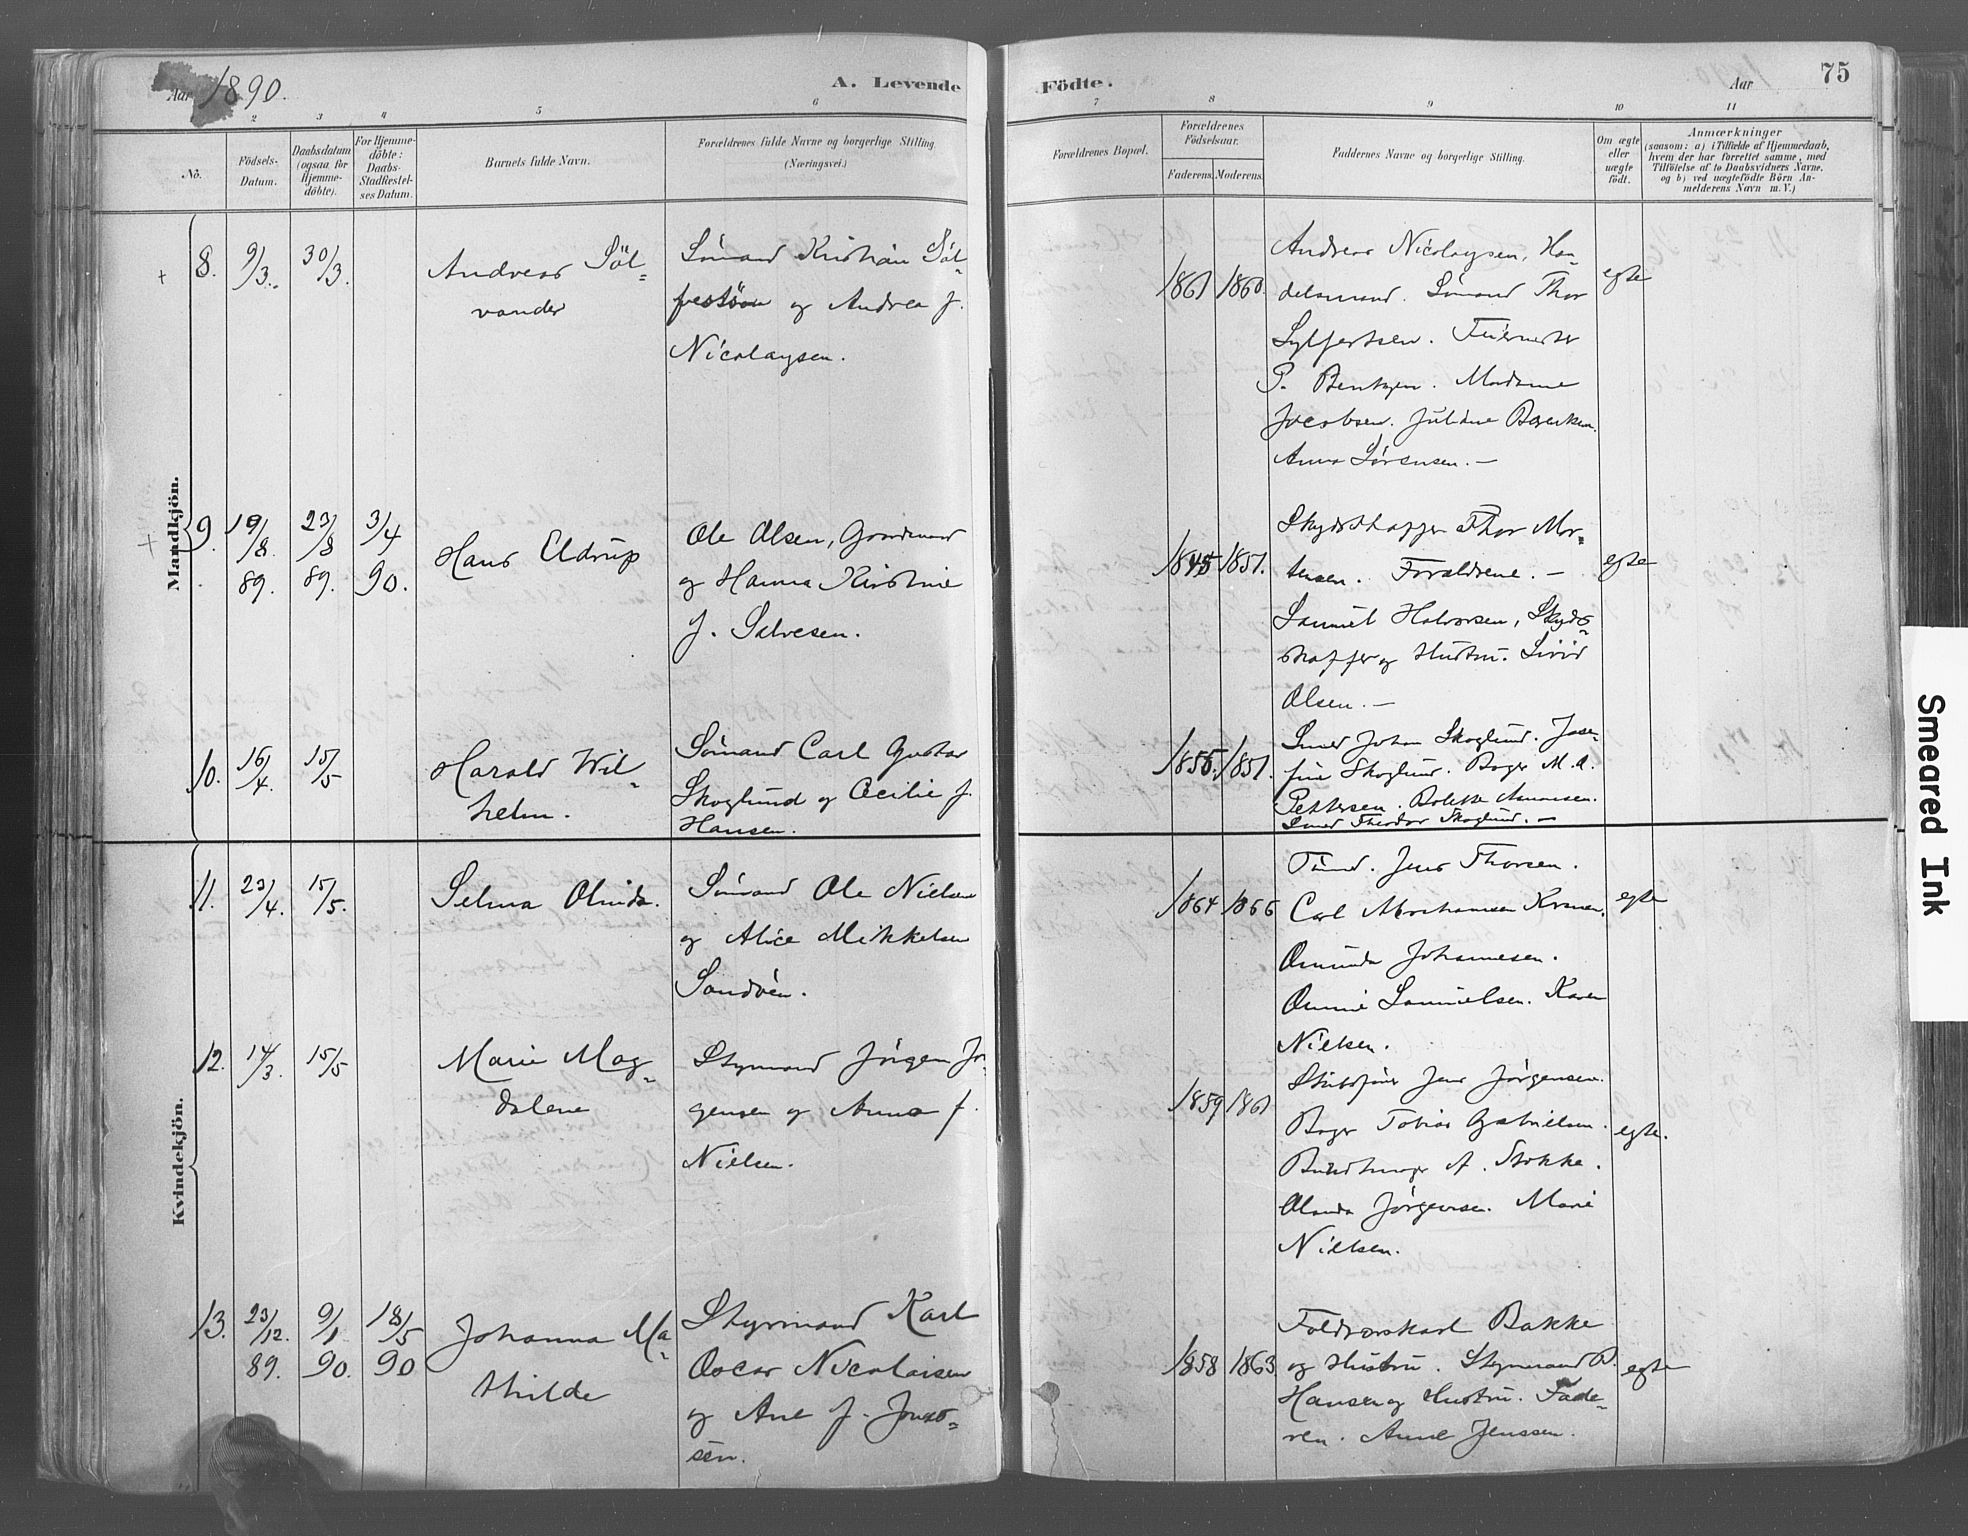 Aar 1890.
A. Levende
Födte.
Aar
75
2 3 4 5 6
7 8 9 10 11
No.
Födsels-
Datum.
Daabsdatum
(ogsaa for
Hjemme-
döbte).
For Hjemme-
döbte:
Daabs-
Stadfæstel-
ses Datum.
Barnets fulde Navn.
Forældrenes fulde Navne og borgerlige Stilling
(Næringsvei.)
Forældrenes Bopæl.
Forældrenes
Födselsaar.
Faderens. Moderens.
Faddernes Navne og borgerlige Stilling.
Om ægte
eller
uægte
födt.
Anmærkninger
(saasom: a) i Tilfælde af Hjemmedaab,
hvem der har forrettet samme, med
Tilföielse af to Daabsvidners Navne,
og b) ved uægtefödte Börn An-
melderens Navn m. V.)
Mandkjön.
8. 9/3. 30/3.
Andreas Söl-
vander
Sömand Kristian Söl-
festsön og Andrea f.
Nicolaysen.
1861 1860.
Andreas Nicolaysen, Han-
delsmand. Sömand Thor
Sylfestsen.
P. Bentzen. Madame
Jacobsen.
Anna Sörensen. —
egte
9. 19/8. 89. 23/8 89. 3/4 90.
Hans Eldrup
Ole Olsen, Gaardmand
og Hanna Kirstine
f. Salvesen.
1845 1851.
Skydsskaffer Thor Mor-
tensen. Forældrene. —
Samuel Halvorsen, Skyds-
skaffer og Hustru. Sivid
Olsen. —
egte
10. 16/4. 15/5
Harald Wil-
helm.
Sömand Carl Gustav
Skoglund og Cecilie f.
Hansen.
1855. 1851.
Smed Johan Skoglund. Jose-
fine Skoglund. Bager M. A.
Pettersen. Bolette Asmonsen.
Smed Theodor Skoglund. —
Kvindekjön.
11. 23/4. 15/5.
Selma Olinda.
Sömand Ole Nielsen
og Alice Mikkelsen
Sandöen.
1864 1866
Tönd. Jens Thorsen.
Carl Abrahamsen
Omunda Johannesen.
Samuelsen. Karen
Nielsen.
egte
12. 14/3. 15/5
Marie Mag-
dalene
Styrmand Jörgen Jör-
gensen og Anna f.
Nielsen.
1859 1861
Skibsförer Jens Jörgensen.
Bager Tobias Gabrielsen.
A. Stokke.
Olanda Jörgensen. Marie
Nielsen.
egte.
13. 23/12. 89. 9/1 90. 18/5 90
Johanna Ma-
thilde
Styrmand Karl
Oscar Nicolaisen
og Ane f. Jonas-
sen.
1858 1863
Bakke
og Hustru. Styrmand B.
Hansen og Hustru. Fade-
ren. Anne Jenssen.
egte
Smeared Ink